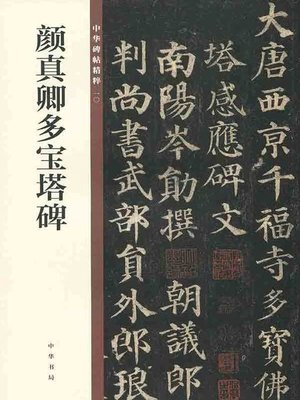 颜真卿多宝塔碑
中华碑帖精粹 二〇
中华书局
大唐西京千福寺多寶佛
塔感應碑文
南陽岑勛撰 朝議郎
判尚書武部員外郎琅